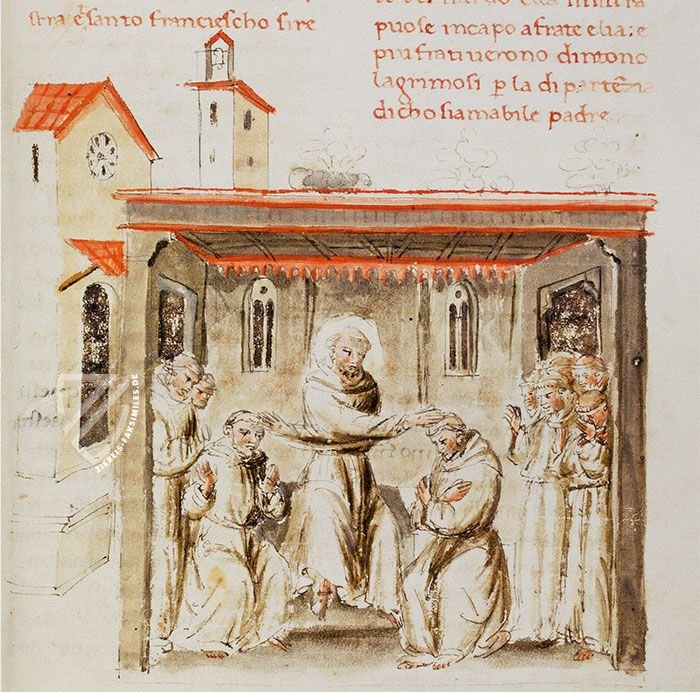 stra ⁊ santo franciescho sire
puose incapo afrate elia: e
piu frati verono dintono
lagrimosi p̲ la di partēzia
dicho siamabile padre
ZIEREIS-FAKSIMILES.DE